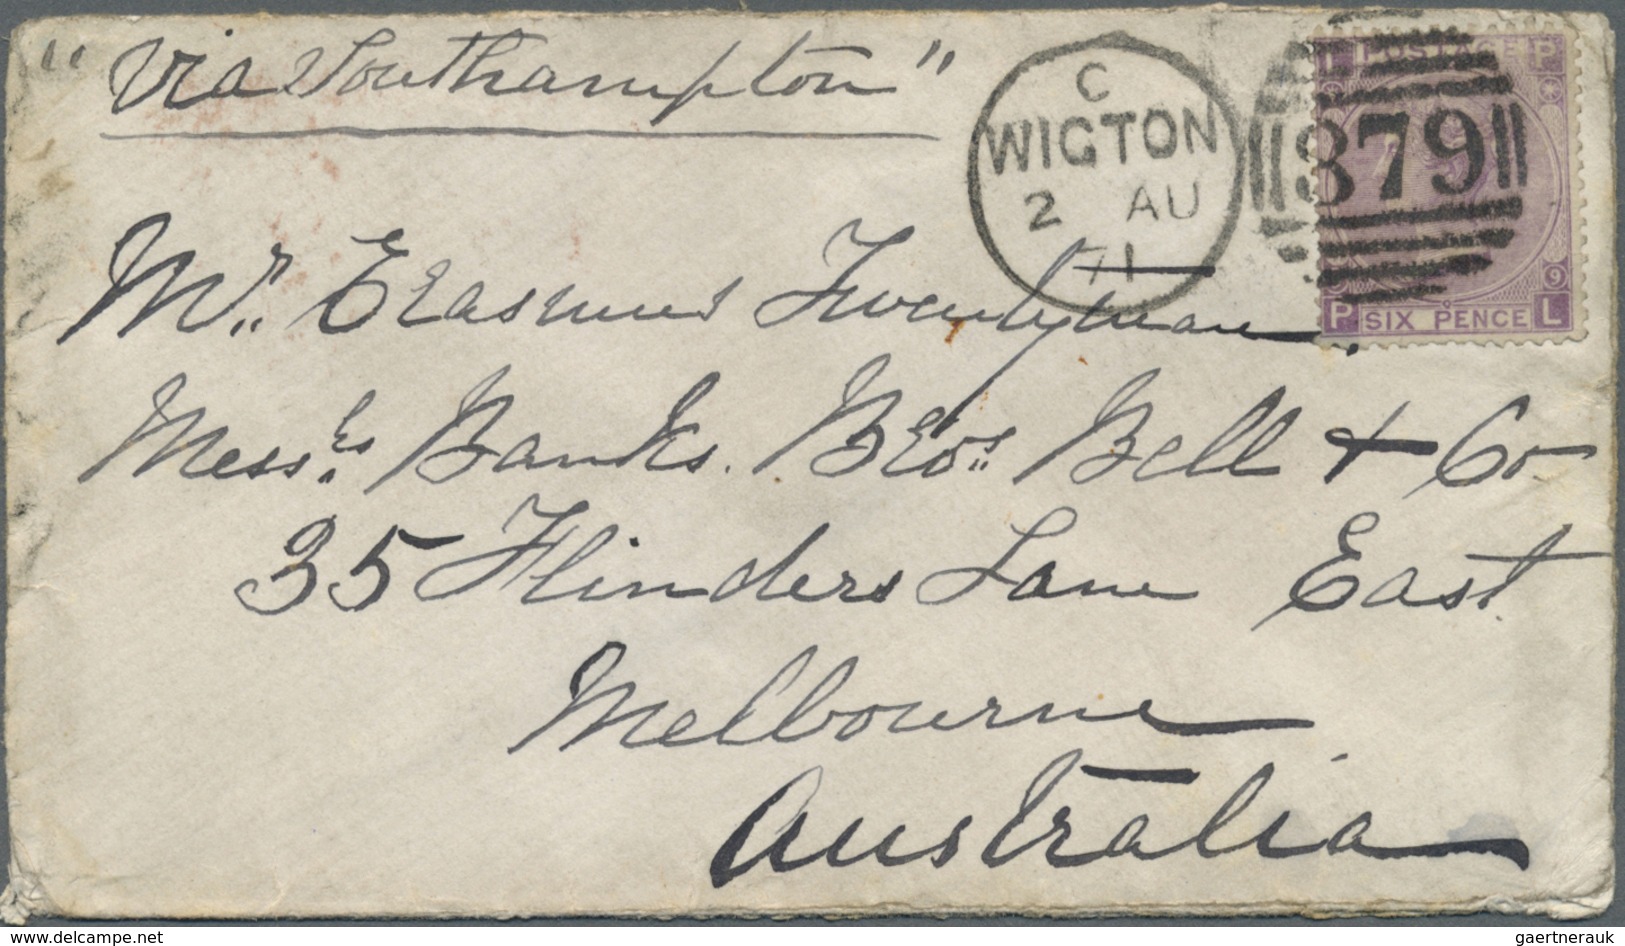 "Via Southampton"
C
WIGTON
2 AU
71
879
L POSTAGE P
9
P SIX PENCE L
Mr. Erasmus Twentyman,
Messrs. Banks. Bros. Bell & Co
35 Flinders Lane East
Melbourne
Australia
www.delcampe.net
gaertnerauk